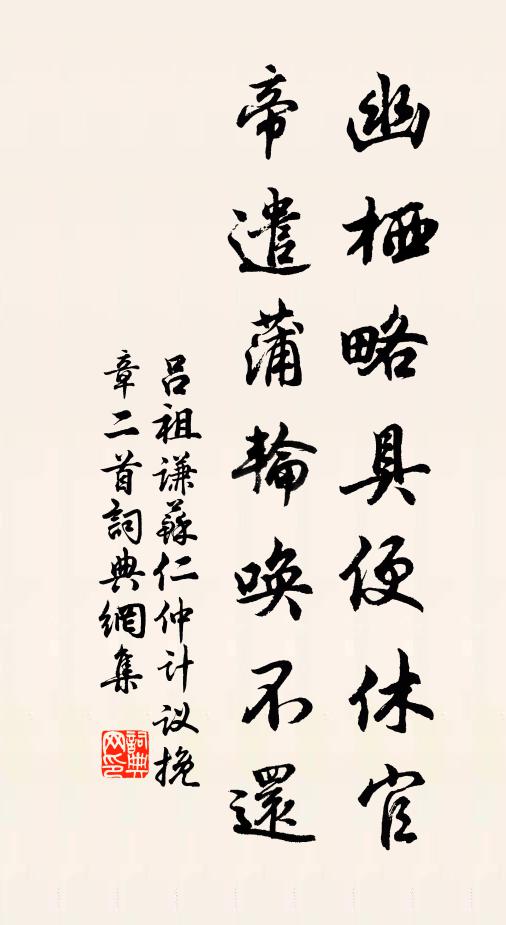 幽栖略具便休官
帝遣蒲輪喚不還
吕祖谦蘇仁仲计议挽
章二首詞典網集
詞典
网印